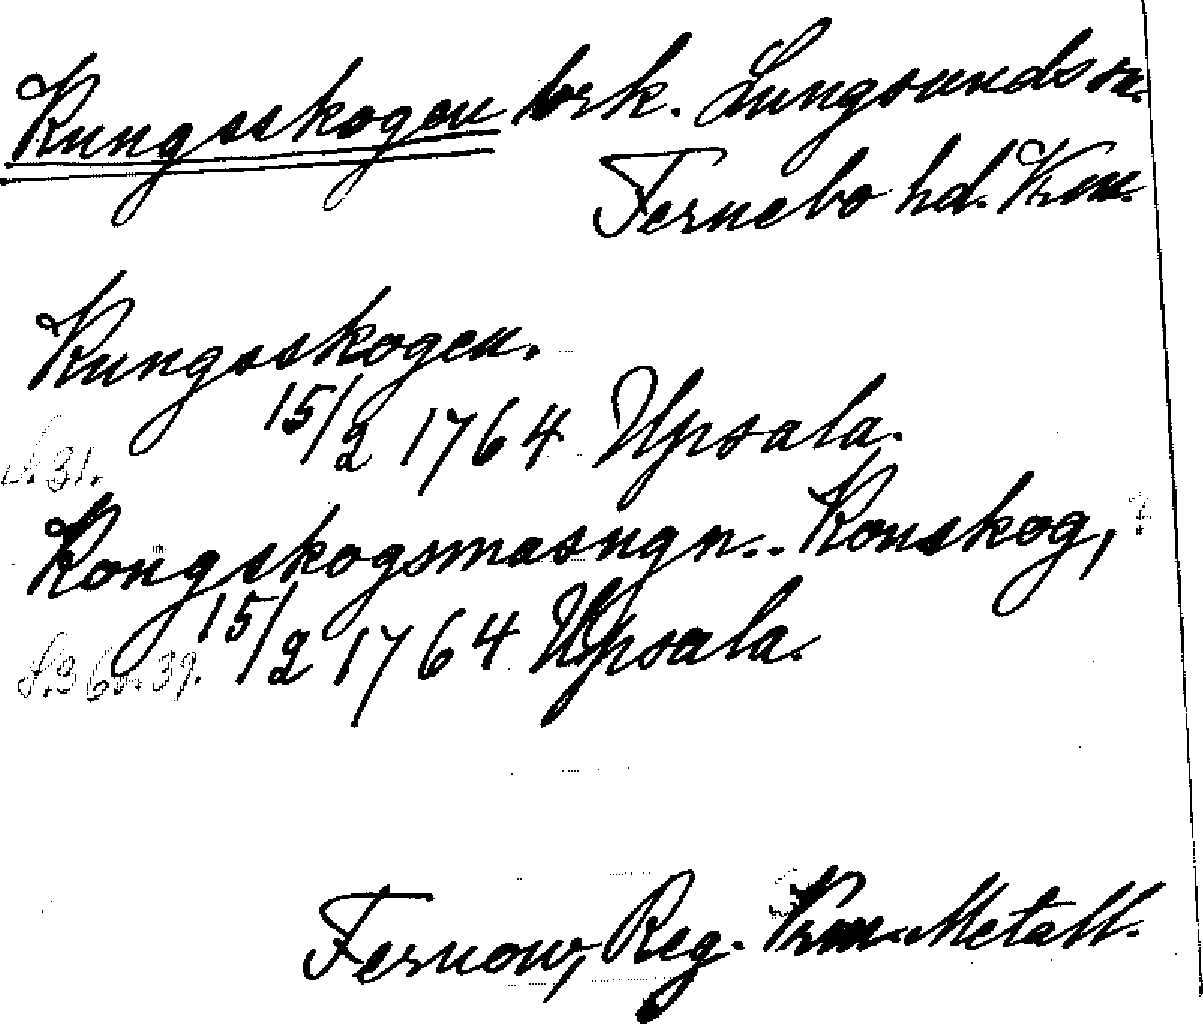 Kungsskogen brk. Lungsunds sn.
Fernebo hd. Vrm.
Kungsskogen.
15/2 1764 Upsala.
s. 31.
Kongskogsmasugn.. Konskog,
15/2 1764 Upsala.
s. 36o. 39.
Fernow, Reg. Vrm. Metall.